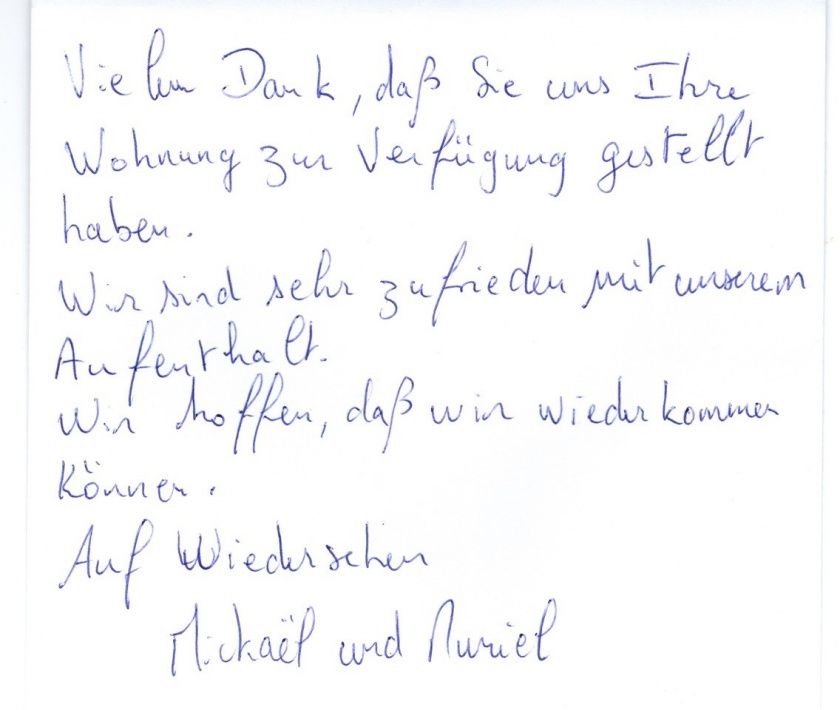 Vielen Dank, daß Sie uns Ihre
Wohnung zur Verfügung gestellt
haben.
Wir sind sehr zufrieden mit unserem
Aufenthalt.
Wir hoffen, daß wir wieder kommen
können.
Auf Wiedersehen
Mickaël und Muriel